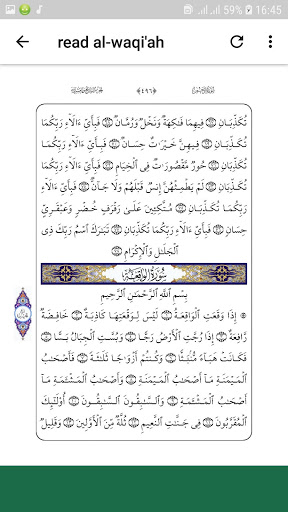 16:45 59%
read al-waqi'ah
﴿٤٩٦﴾
تُكَذِّبَانِ ۝ فِيهِمَا فَٰكِهَةٌ وَنَخْلٌ وَرُمَّانٌ ۝ فَبِأَيِّ ءَالَآءِ رَبِّكُمَا
تُكَذِّبَانِ ۝ فِيهِنَّ خَيْرَٰتٌ حِسَانٌ ۝ فَبِأَيِّ ءَالَآءِ رَبِّكُمَا
تُكَذِّبَانِ ۝ حُورٌ مَّقْصُورَٰتٌ فِي ٱلْخِيَامِ ۝ فَبِأَيِّ ءَالَآءِ رَبِّكُمَا
تُكَذِّبَانِ ۝ لَمْ يَطْمِثْهُنَّ إِنسٌ قَبْلَهُمْ وَلَا جَآنٌّ ۝ فَبِأَيِّ ءَالَآءِ
رَبِّكُمَا تُكَذِّبَانِ ۝ مُتَّكِـِٔينَ عَلَىٰ رَفْرَفٍ خُضْرٍ وَعَبْقَرِيٍّ
حِسَانٍ ۝ فَبِأَيِّ ءَالَآءِ رَبِّكُمَا تُكَذِّبَانِ ۝ تَبَٰرَكَ ٱسْمُ رَبِّكَ ذِي
ٱلْجَلَٰلِ وَٱلْإِكْرَامِ ۝
سُورَةُ الوَاقِعَةِ
بِسْمِ ٱللَّهِ ٱلرَّحْمَٰنِ ٱلرَّحِيمِ
۞ إِذَا وَقَعَتِ ٱلْوَاقِعَةُ ۝ لَيْسَ لِوَقْعَتِهَا كَاذِبَةٌ ۝ خَافِضَةٌ
رَّافِعَةٌ ۝ إِذَا رُجَّتِ ٱلْأَرْضُ رَجًّا ۝ وَبُسَّتِ ٱلْجِبَالُ بَسًّا ۝
فَكَانَتْ هَبَآءً مُّنۢبَثًّا ۝ وَكُنتُمْ أَزْوَٰجًا ثَلَٰثَةً ۝ فَأَصْحَٰبُ
ٱلْمَيْمَنَةِ مَآ أَصْحَٰبُ ٱلْمَيْمَنَةِ ۝ وَأَصْحَٰبُ ٱلْمَشْـَٔمَةِ مَآ
أَصْحَٰبُ ٱلْمَشْـَٔمَةِ ۝ وَٱلسَّٰبِقُونَ ٱلسَّٰبِقُونَ ۝ أُو۟لَٰٓئِكَ
ٱلْمُقَرَّبُونَ ۝ فِي جَنَّٰتِ ٱلنَّعِيمِ ۝ ثُلَّةٌ مِّنَ ٱلْأَوَّلِينَ ۝ وَقَلِيلٌ